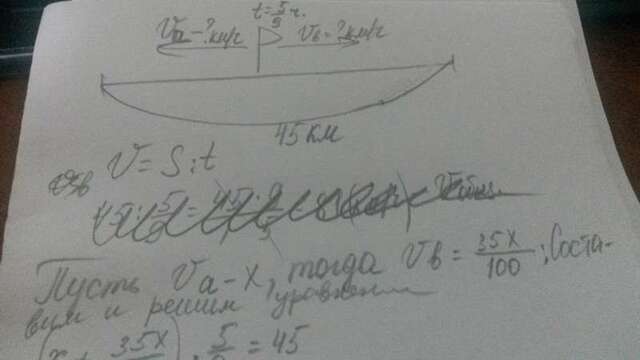 t=5/9 ч.
Va-?км/ч Vв=?км/ч
45 км
V=S:t
Пусть Va-x, тогда Vв = 35x/100; Соста-
вим и решим уровнение
35x 5 = 45